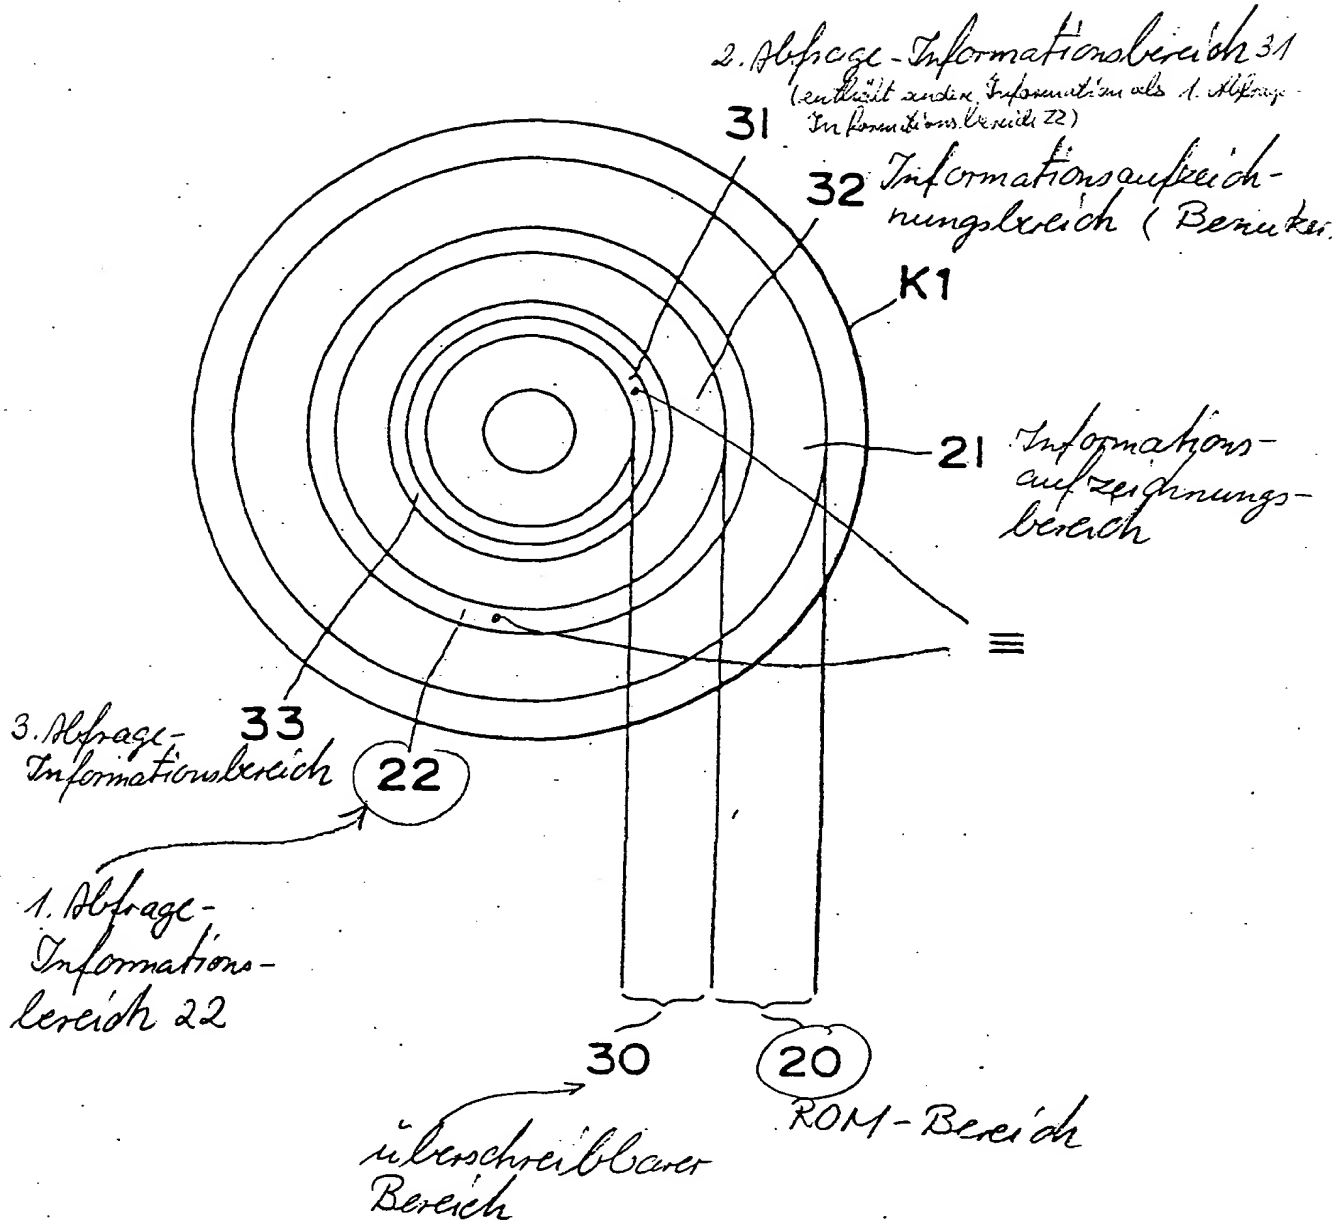 2. Abfrage-Informationsbereich 31
(enthält andere Information als 1. Abfrage-
Informationsbereich 22)
31
32 Informationsaufzeich-
nungsbereich (Benutzer
K1
21 Informations-
aufzeichnungs-
bereich
≡
3. Abfrage-
Informationsbereich
33
22
1. Abfrage-
Informations-
bereich 22
30
20
ROM-Bereich
überschreibbarer
Bereich